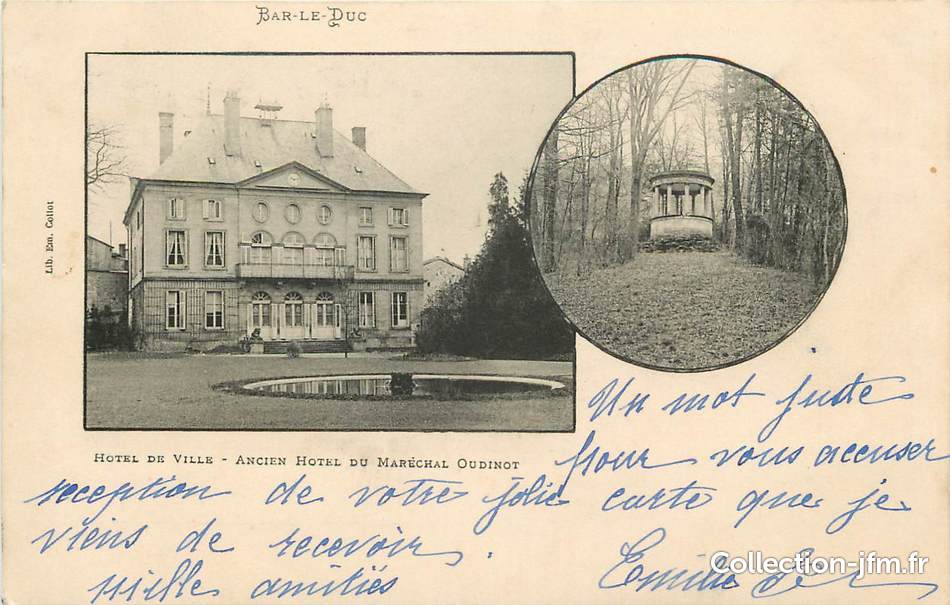 BAR-LE-DUC
Lib. Em. Collot
HOTEL DE VILLE - ANCIEN HOTEL DU MARÉCHAL OUDINOT
Un mot juste
pour vous accuser
reception de votre jolie carte que je
viens de recevoir.
mille amitiés Emilie
Collection-jfm.fr